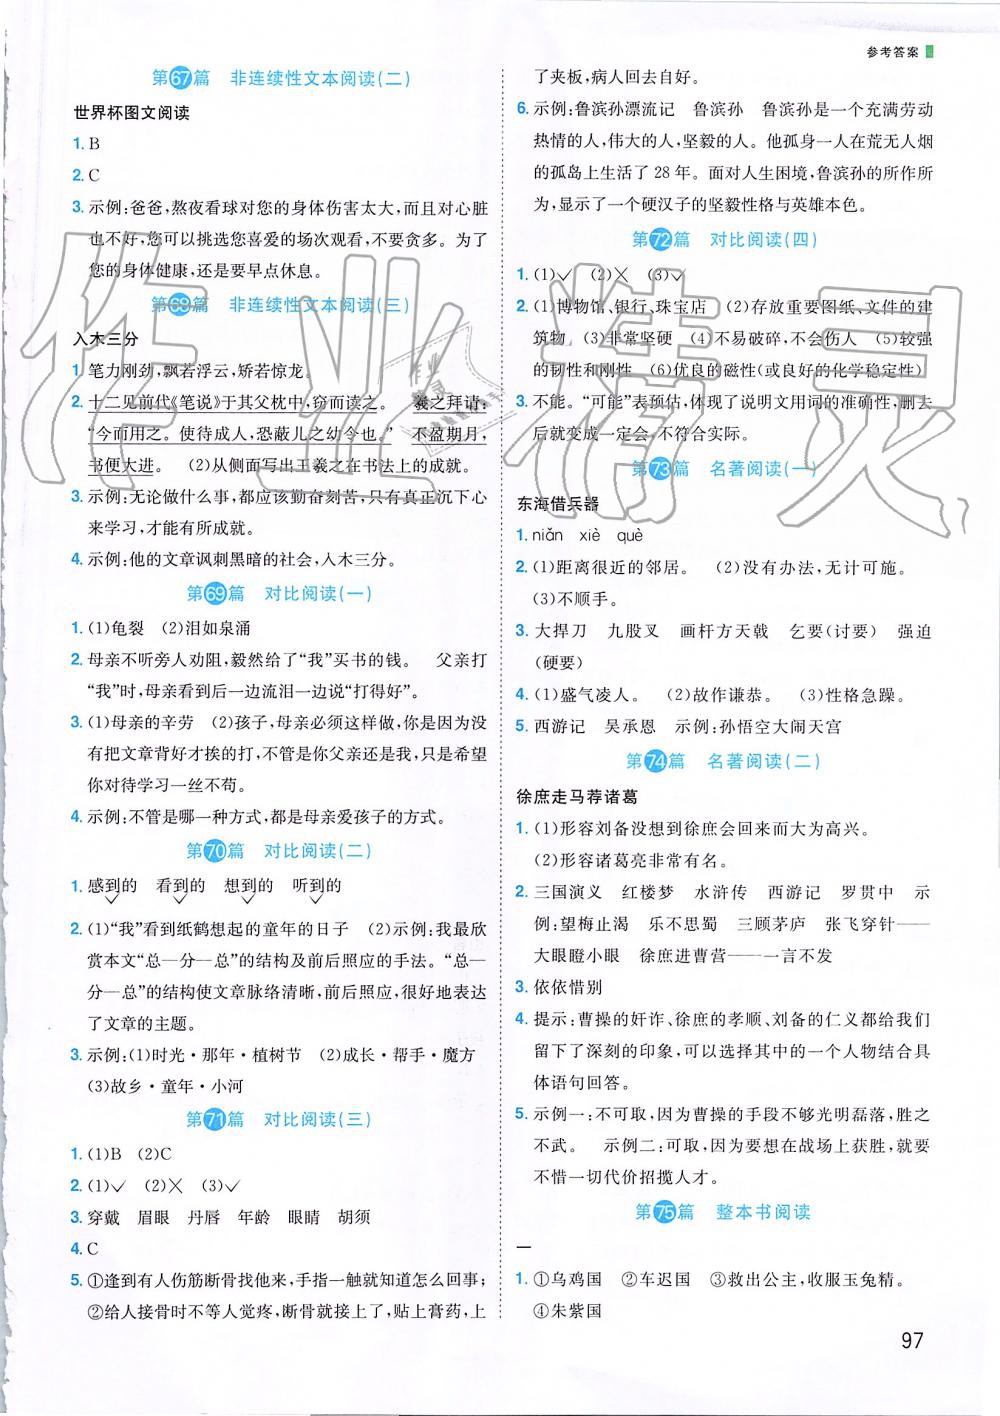 参考答案
第67篇 非连续性文本阅读(二)
世界杯图文阅读
1. B
2. C
3. 示例:爸爸,熬夜看球对您的身体伤害太大,而且对心脏
也不好,您可以挑选您喜爱的场次观看,不要贪多。为了
您的身体健康,还是要早点休息。
第68篇 非连续性文本阅读(三)
入木三分
1. 笔力刚劲,飘若浮云,矫若惊龙。
2. 十二见前代《笔说》于其父枕中,窃而读之。 羲之拜请:
“今而用之。使待成人,恐蔽儿之幼令也。” 不盈期月,
书便大进。 (2)从侧面写出王羲之在书法上的成就。
3. 示例:无论做什么事,都应该勤奋刻苦,只有真正沉下心
来学习,才能有所成就。
4. 示例:他的文章讽刺黑暗的社会,入木三分。
第69篇 对比阅读(一)
1. (1)龟裂 (2)泪如泉涌
2. 母亲不听旁人劝阻,毅然给了“我”买书的钱。 父亲打
“我”时,母亲看到后一边流泪一边说“打得好”。
3. (1)母亲的辛劳 (2)孩子,母亲必须这样做,你是因为没
有把文章背好才挨的打,不管是你父亲还是我,只是希望
你对待学习一丝不苟。
4. 示例:不管是哪一种方式,都是母亲爱孩子的方式。
第70篇 对比阅读(二)
1. 感到的 看到的 想到的 听到的
2. (1)“我”看到纸鹤想起的童年的日子 (2)示例:我最欣
赏本文“总—分—总”的结构及前后照应的手法。“总—
分—总”的结构使文章脉络清晰,前后照应,很好地表达
了文章的主题。
3. 示例:(1)时光·那年·植树节 (2)成长·帮手·魔方
(3)故乡·童年·小河
第71篇 对比阅读(三)
1. (1)B (2)C
2. (1)✓ (2)✕ (3)✓
3. 穿戴 眉眼 丹唇 年龄 眼睛 胡须
4. C
5. ①逢到有人伤筋断骨找他来,手指一触就知道怎么回事;
②给人接骨时不等人觉疼,断骨就接上了,贴上膏药,上
了夹板,病人回去自好。
6. 示例:鲁滨孙漂流记 鲁滨孙 鲁滨孙是一个充满劳动
热情的人,伟大的人,坚毅的人。他孤身一人在荒无人烟
的孤岛上生活了 28 年。面对人生困境,鲁滨孙的所作所
为,显示了一个硬汉子的坚毅性格与英雄本色。
第72篇 对比阅读(四)
1. (1)✓ (2)✕ (3)✓
2. (1)博物馆、银行、珠宝店 (2)存放重要图纸、文件的建
筑物。 (3)非常坚硬 (4)不易破碎,不会伤人 (5)较强
的韧性和刚性 (6)优良的磁性(或良好的化学稳定性)
3. 不能。“可能”表预估,体现了说明文用词的准确性,删去
后就变成一定会,不符合实际。
第73篇 名著阅读(一)
东海借兵器
1. niǎn xiè què
2. (1)距离很近的邻居。 (2)没有办法,无计可施。
(3)不顺手。
3. 大捍刀 九股叉 画杆方天戟 乞要(讨要) 强迫
(硬要)
4. (1)盛气凌人。 (2)故作谦恭。 (3)性格急躁。
5. 西游记 吴承恩 示例:孙悟空大闹天宫
第74篇 名著阅读(二)
徐庶走马荐诸葛
1. (1)形容刘备没想到徐庶会回来而大为高兴。
(2)形容诸葛亮非常有名。
2. 三国演义 红楼梦 水浒传 西游记 罗贯中 示
例:望梅止渴 乐不思蜀 三顾茅庐 张飞穿针——
大眼瞪小眼 徐庶进曹营——一言不发
3. 依依惜别
4. 提示:曹操的奸诈、徐庶的孝顺、刘备的仁义都给我们
留下了深刻的印象,可以选择其中的一个人物结合具
体语句回答。
5. 示例一:不可取,因为曹操的手段不够光明磊落,胜之
不武。 示例二:可取,因为要想在战场上获胜,就要
不惜一切代价招揽人才。
第75篇 整本书阅读
一
1. ①乌鸡国 ②车迟国 ③救出公主,收服玉兔精。
④朱紫国
97
作业精灵